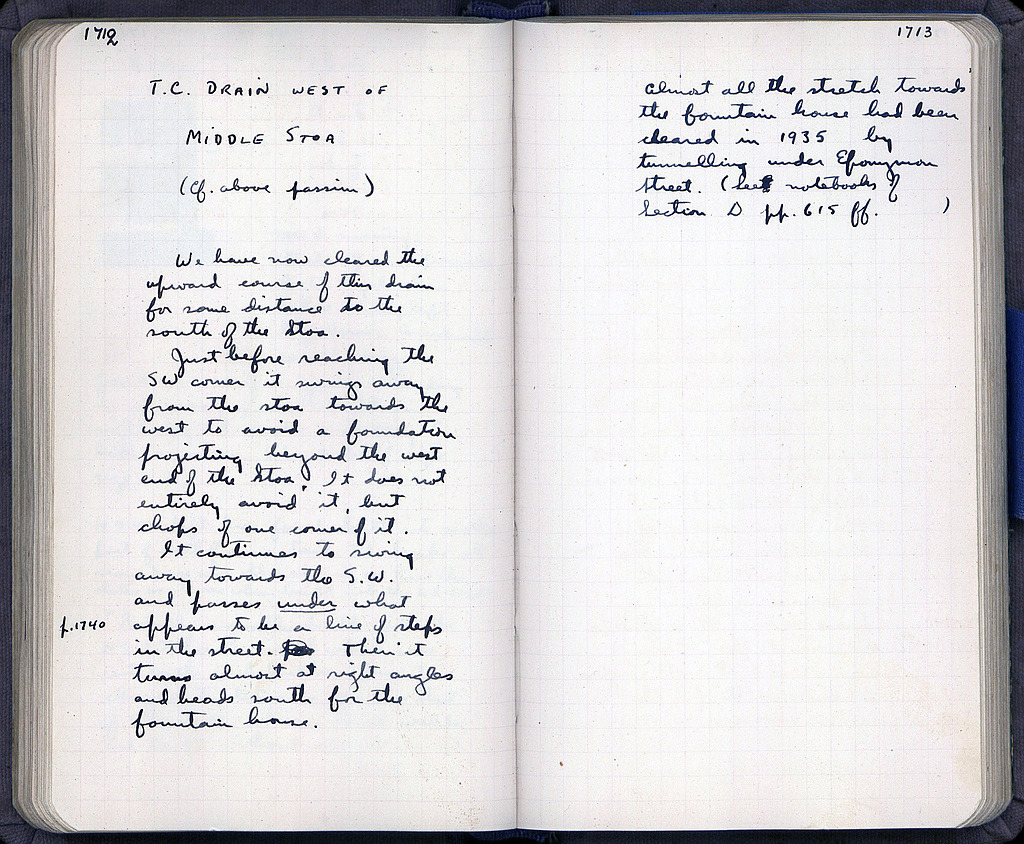 1712
T.C. DRAIN WEST OF
MIDDLE STOA
(Cf. above passim)
We have now cleared the
upward course of this drain
for some distance to the
south of the Stoa.
Just before reaching the
SW corner it swings away
from the stoa towards the
west to avoid a foundation
projecting beyond the west
end of the Stoa. It does not
entirely avoid it, but
chops off one corner of it.
It continues to swing
away towards the S.W.
and passes under what
p.1740 appears to be a line of steps
in the street. Then it
turns almost at right angles
and heads south for the
fountain house.
1713
almost all the stretch towards
the fountain house had been
cleared in 1935 by
tunnelling under Eponymon
Street. (See notebooks of
Section D pp. 615 ff. )